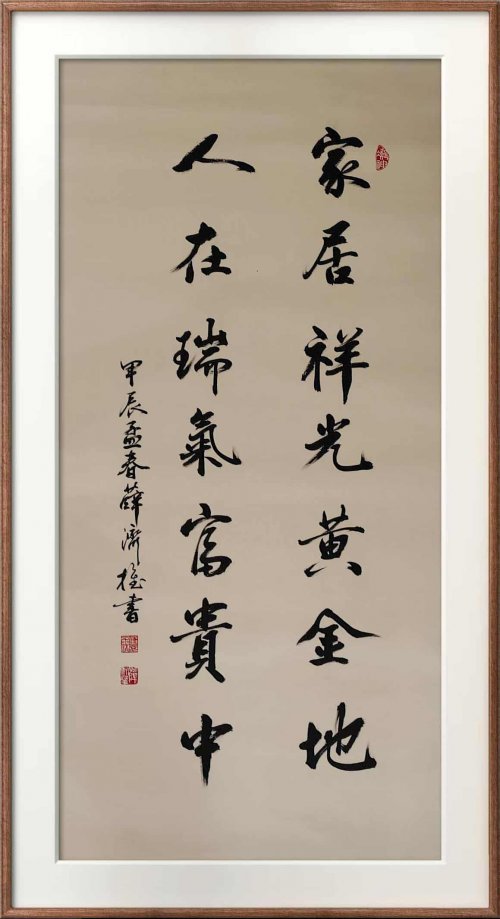 家居祥光黄金地
人在瑞氣富貴中
甲辰孟春薛济權書